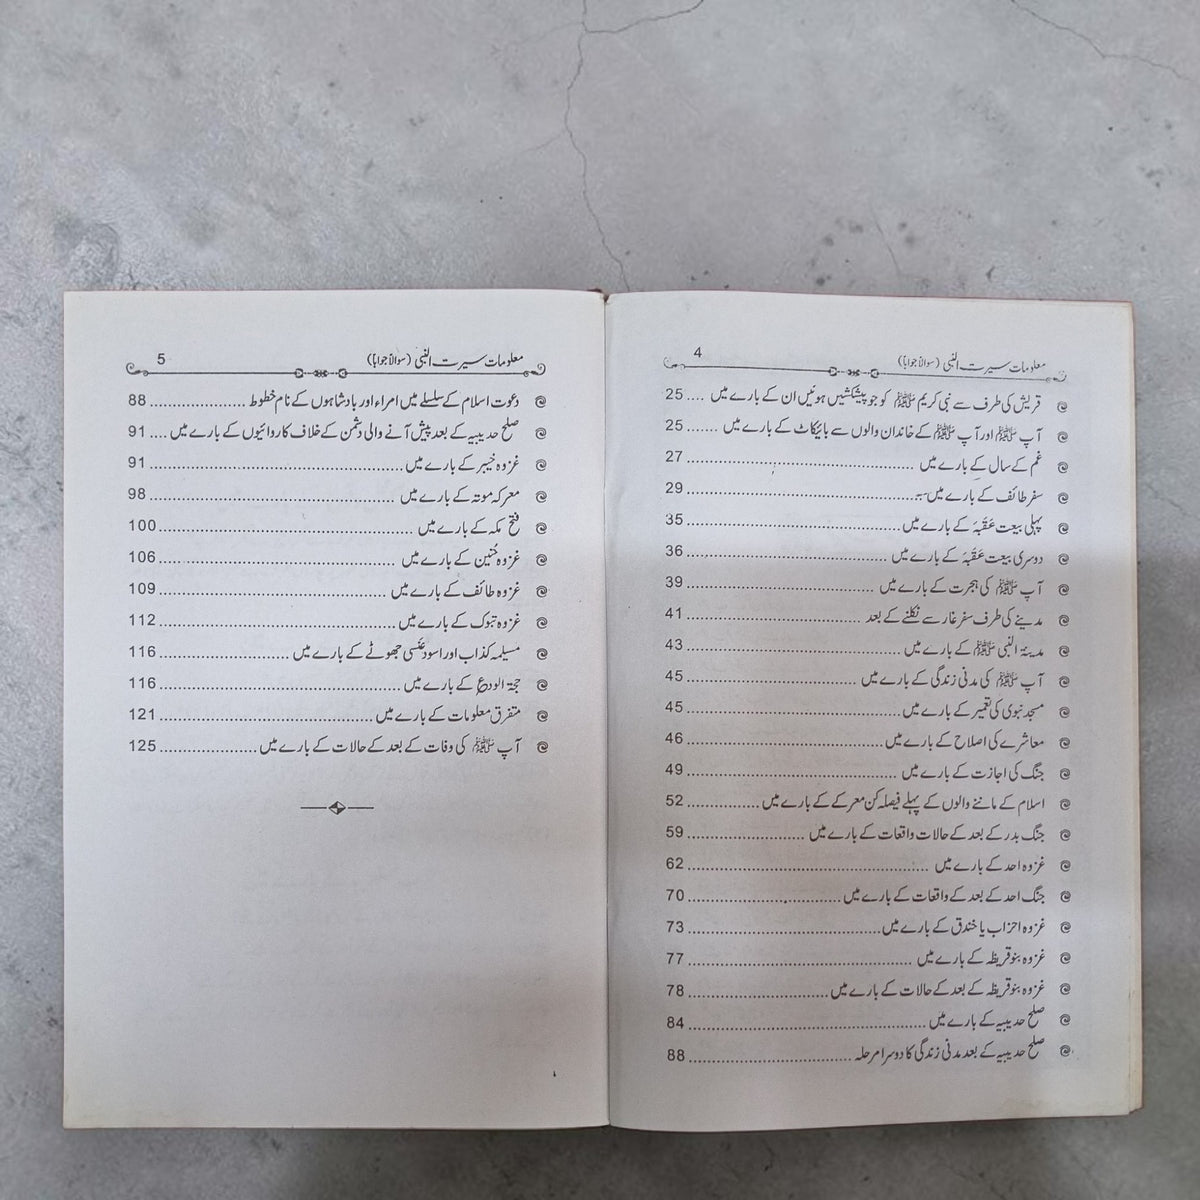 معلومات سیرت النبی (سوالاً جواباً) 4
قریش کی طرف سے نبی کریم ﷺ کو جو پیشکشیں ہوئیں ان کے بارے میں .... 25
آپ ﷺ اور آپ ﷺ کے خاندان والوں سے بائیکاٹ کے بارے میں ....... 25
غم کے سال کے بارے میں ........ 27
سفر طائف کے بارے میں ........ 29
پہلی بیعت عَقَبَہ کے بارے میں ........ 35
دوسری بیعت عَقَبَہ کے بارے میں ........ 36
آپ ﷺ کی ہجرت کے بارے میں ........ 39
مدینے کی طرف سفر غار سے نکلنے کے بعد ........ 41
مدینۃ النبی ﷺ کے بارے میں ........ 43
آپ ﷺ کی مدنی زندگی کے بارے میں ........ 45
مسجد نبوی کی تعمیر کے بارے میں ........ 45
معاشرے کی اصلاح کے بارے میں ........ 46
جنگ کی اجازت کے بارے میں ........ 49
اسلام کے ماننے والوں کے پہلے فیصلہ کن معرکے کے بارے میں ........ 52
جنگ بدر کے بعد کے حالات واقعات کے بارے میں ........ 59
غزوہ احد کے بارے میں ........ 62
جنگ احد کے بعد کے واقعات کے بارے میں ........ 70
غزوہ احزاب یا خندق کے بارے میں ........ 73
غزوہ بنو قریظہ کے بارے میں ........ 77
غزوہ بنو قریظہ کے بعد کے حالات کے بارے میں ........ 78
صلح حدیبیہ کے بارے میں ........ 84
صلح حدیبیہ کے بعد مدنی زندگی کا دوسرا مرحلہ ........ 88
معلومات سیرت النبی (سوالاً جواباً) 5
دعوت اسلام کے سلسلے میں امراء اور بادشاہوں کے نام خطوط ........ 88
صلح حدیبیہ کے بعد پیش آنے والی دشمن کے خلاف کاروائیوں کے بارے میں .... 91
غزوہ خیبر کے بارے میں ........ 91
معرکہ موتہ کے بارے میں ........ 98
فتح مکہ کے بارے میں ........ 100
غزوہ حُنین کے بارے میں ........ 106
غزوہ طائف کے بارے میں ........ 109
غزوہ تبوک کے بارے میں ........ 112
مسیلمہ کذاب اور اسود عَنَسی جھوٹے کے بارے میں ........ 116
حجۃ الوداع کے بارے میں ........ 116
متفرق معلومات کے بارے میں ........ 121
آپ ﷺ کی وفات کے بعد کے حالات کے بارے میں ........ 125